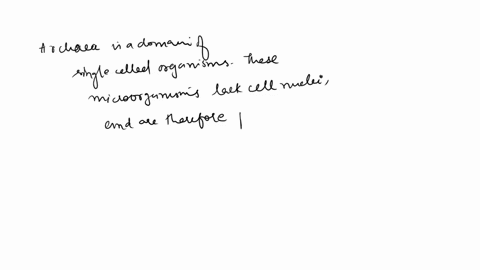 Archaea is a domain of
single celled organisms. These
microorganisms lack cell nuclei,
and are therefore